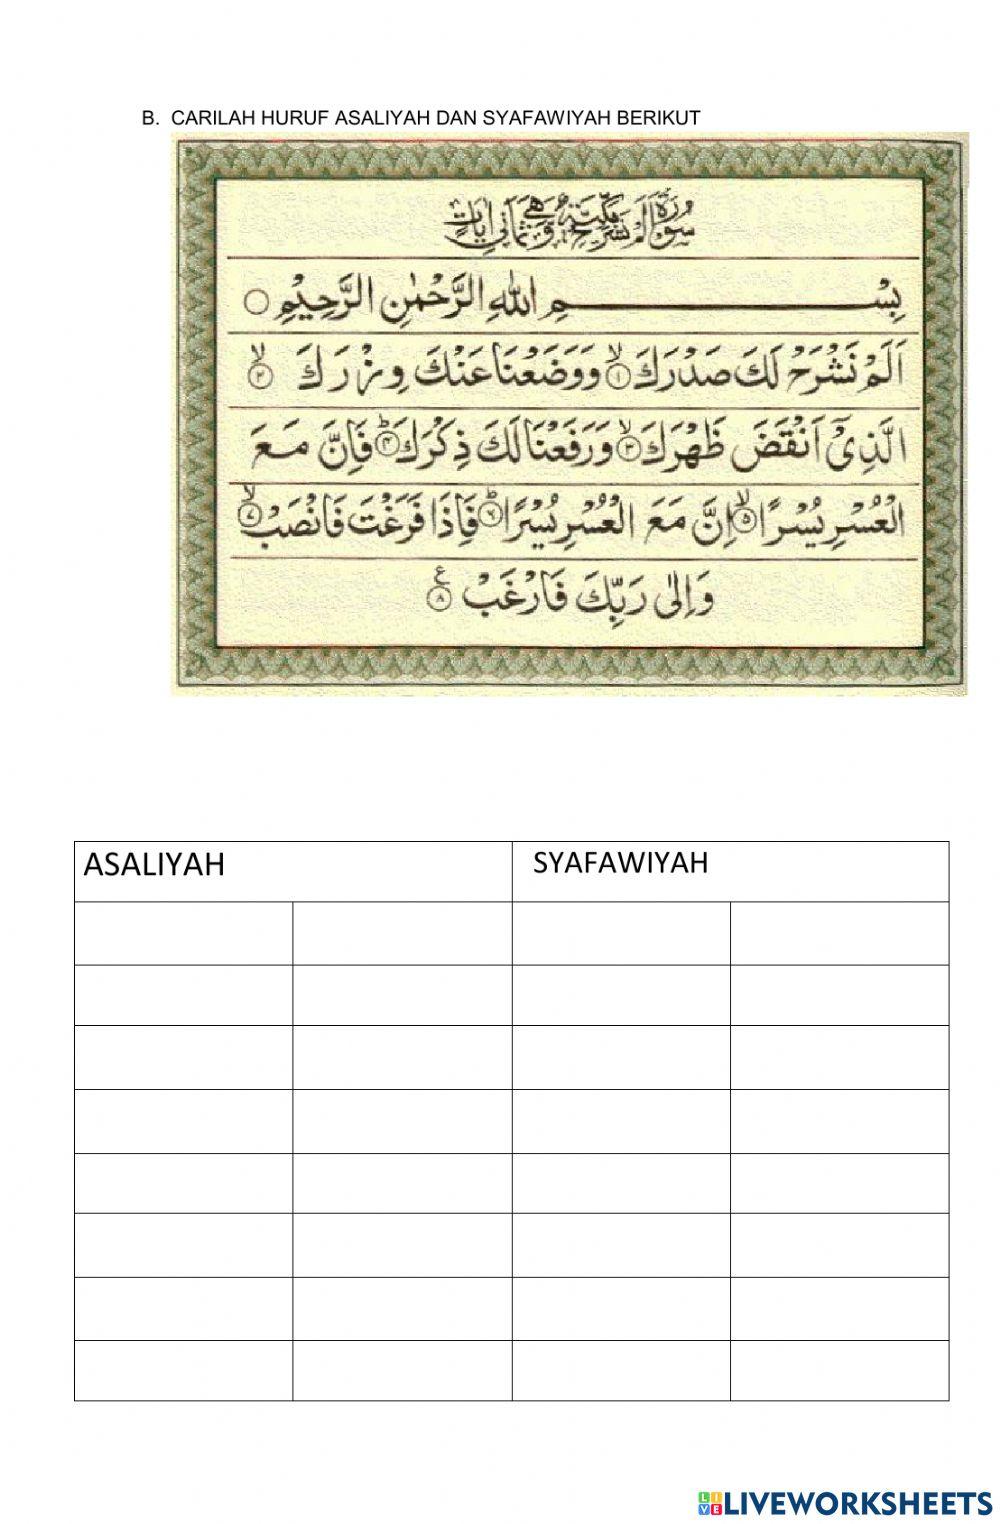 B. CARILAH HURUF ASALIYAH DAN SYAFAWIYAH BERIKUT
سُوْرَةُ اَلَمْ نَشْرَحْ مَكِّيَّةٌ وَّهِيَ ثَمَانِيْ اٰيَاتٍ
بِسْمِ اللهِ الرَّحْمٰنِ الرَّحِيْمِ
اَلَمْ نَشْرَحْ لَكَ صَدْرَكَ ۙ﴿١﴾ وَوَضَعْنَا عَنْكَ وِزْرَكَ ۙ﴿٢﴾
الَّذِيْٓ اَنْقَضَ ظَهْرَكَ ۙ﴿٣﴾ وَرَفَعْنَا لَكَ ذِكْرَكَ ۗ﴿٤﴾ فَاِنَّ مَعَ
الْعُسْرِ يُسْرًا ۙ﴿٥﴾ اِنَّ مَعَ الْعُسْرِ يُسْرًا ۗ﴿٦﴾ فَاِذَا فَرَغْتَ فَانْصَبْ ۙ﴿٧﴾
وَاِلٰى رَبِّكَ فَارْغَبْ ﴿٨﴾ ع
ASALIYAH SYAFAWIYAH
LIVEWORKSHEETS